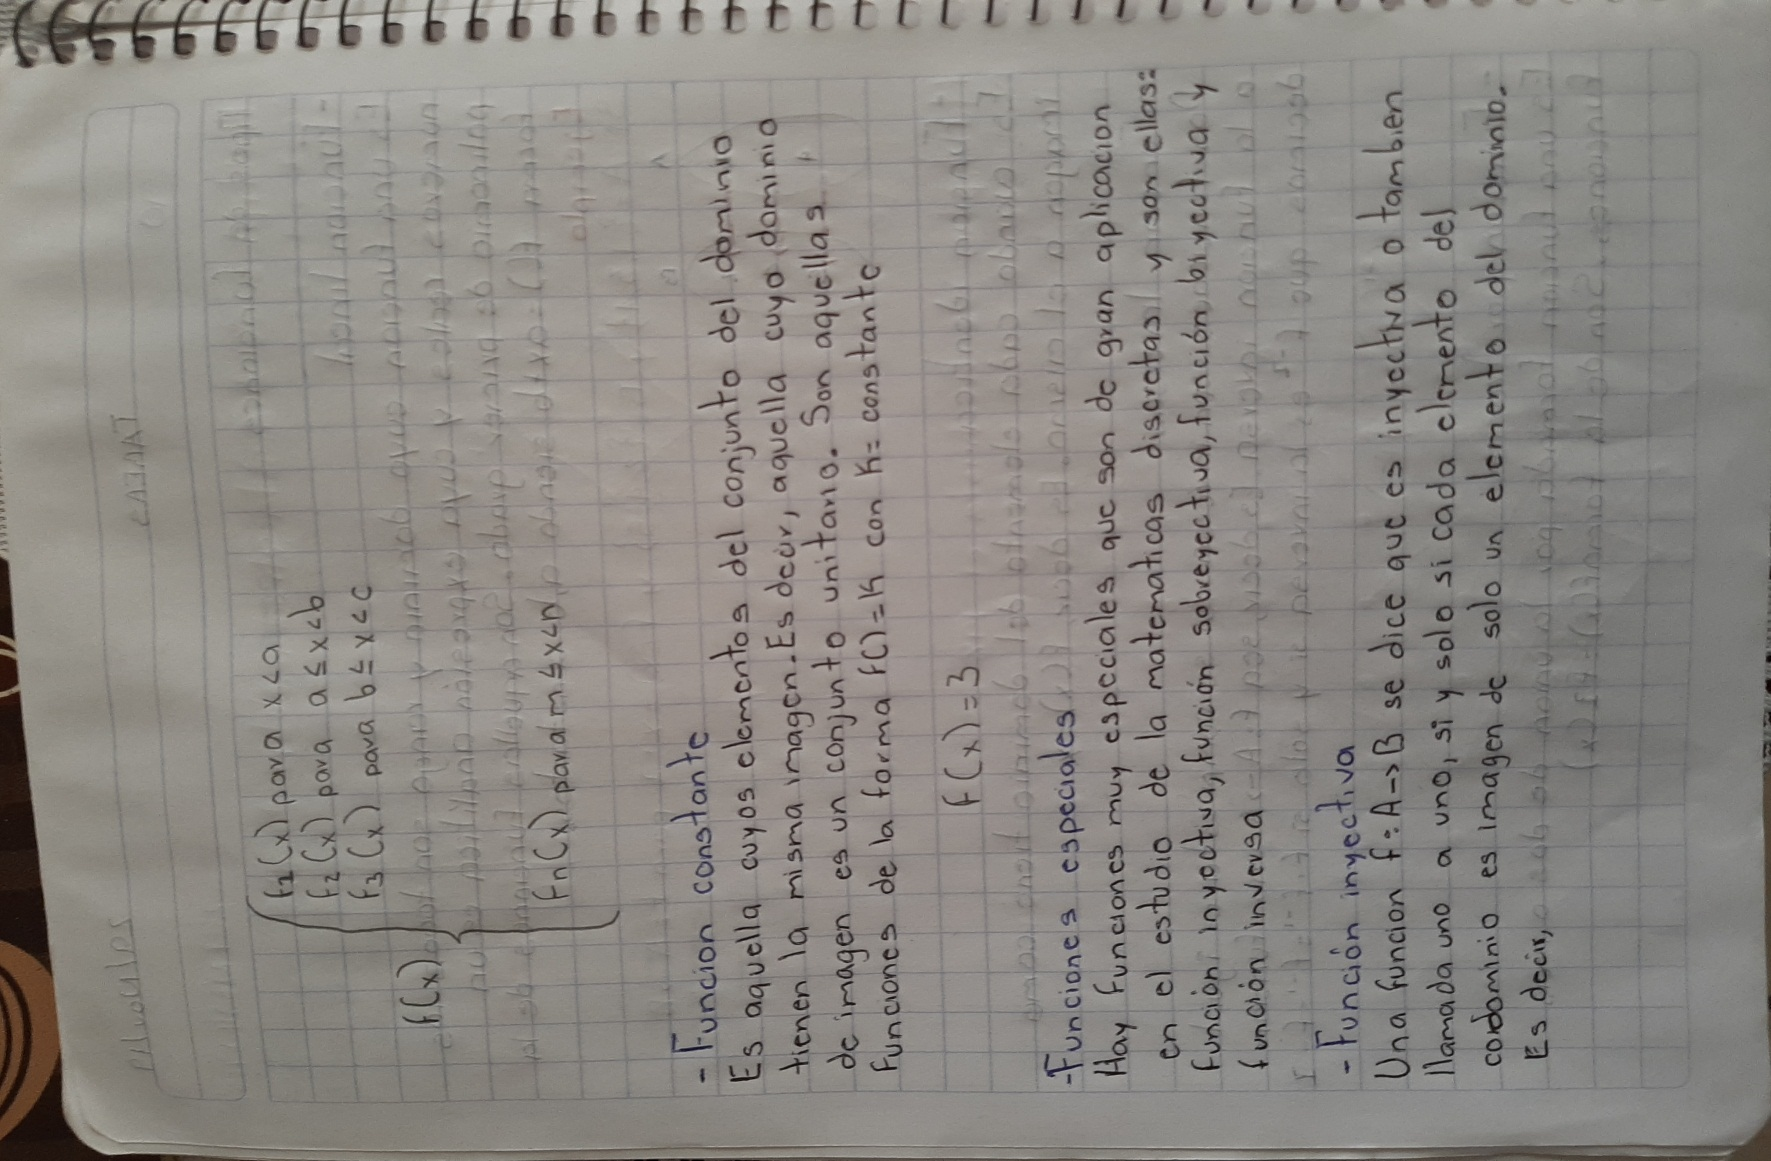 f1(x) para x<a
f2(x) para a≤x<b
f3(x) para b≤x<c
f(x)
fn(x) para m≤x<n
- Funcion constante
Es aquella cuyos elementos del conjunto del dominio
tienen la misma imagen. Es decir, aquella cuyo dominio
de imagen es un conjunto unitario. Son aquellas
funciones de la forma f()=K con K= constante
f(x)=3
-Funciones especiales
Hay funciones muy especiales que son de gran aplicacion
en el estudio de la matematicas discretas y son ellas:
función inyectiva, función sobreyectiva, función biyectiva y
función inversa
- Función inyectiva
Una funcion f:A→B se dice que es inyectiva o tambien
llamada uno a uno, si y solo si cada elemento del
codominio es imagen de solo un elemento del dominio.
Es decir,